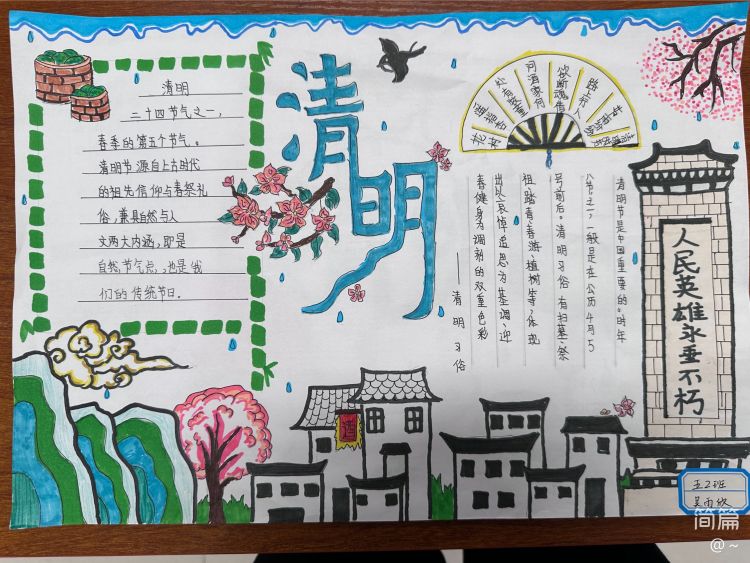 清明
二十四节气之一,
春季的第五个节气。
清明节源自上古时代
的祖先信仰与春祭礼
俗,兼具自然与人
文两大内涵,即是
自然节气点,也是我
们的传统节日。
清明
路上行人
欲断魂借
问酒家何
处有牧童
遥指杏
花村
清明节是中国重要的“时年
八节”之一,一般是在公历4月5
号前后。清明习俗有扫墓、祭
祖、踏青、春游、植树等,体现
出以哀悼追思为基调、迎
春健身为调剂的双重色彩
——清明习俗
人民英雄永垂不朽
酒
五2班
吴雨欣
简篇
@~